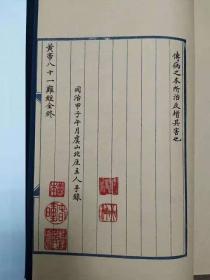 傳病之本所治反增其害也
同治甲子午月虞山北庄主人手錄
黃帝八十一難經全終